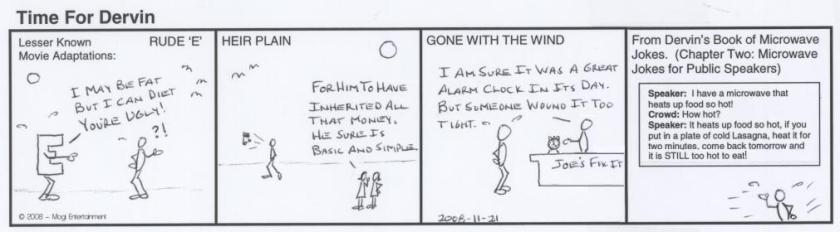 Time For Dervin
Lesser Known RUDE 'E'
Movie Adaptations:
I MAY BE FAT
BUT I CAN DIET
YOU'RE UGLY!
?!
© 2008 – Mogi Entertainment
HEIR PLAIN
FOR HIM TO HAVE
INHERITED ALL
THAT MONEY,
HE SURE IS
BASIC AND SIMPLE
GONE WITH THE WIND
I AM SURE IT WAS A GREAT
ALARM CLOCK IN ITS DAY.
BUT SOMEONE WOUND IT TOO
TIGHT.
JOE'S FIX IT
2008-11-21
From Dervin's Book of Microwave
Jokes. (Chapter Two: Microwave
Jokes for Public Speakers)
Speaker: I have a microwave that
heats up food so hot!
Crowd: How hot?
Speaker: It heats up food so hot, if you
put in a plate of cold Lasagna, heat it for
two minutes, come back tomorrow and
it is STILL too hot to eat!